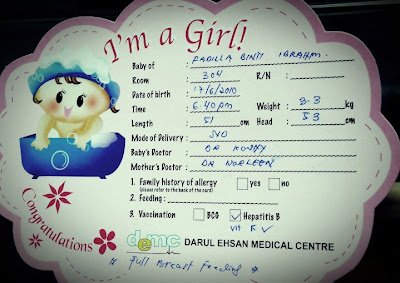 I'm a Girl!
Baby of : FADILLA BINTI IBRAHIM.
Room : 304 R/N :
Date of birth : 17/6/2010
Time : 6.40pm Weight : 3.3 kg
Length : 51 cm Head : 33 cm
Mode of Delivery : SVD
Baby's Doctor : DR
Mother's Doctor : DR NORLEEN
1. Family history of allergy yes no
(please refer to the back of the card)
2. Feeding :
3. Vaccination BCG Hepatitis B
Vit K
Congratulations
demc DARUL EHSAN MEDICAL CENTRE
* Full Breast Feeding *